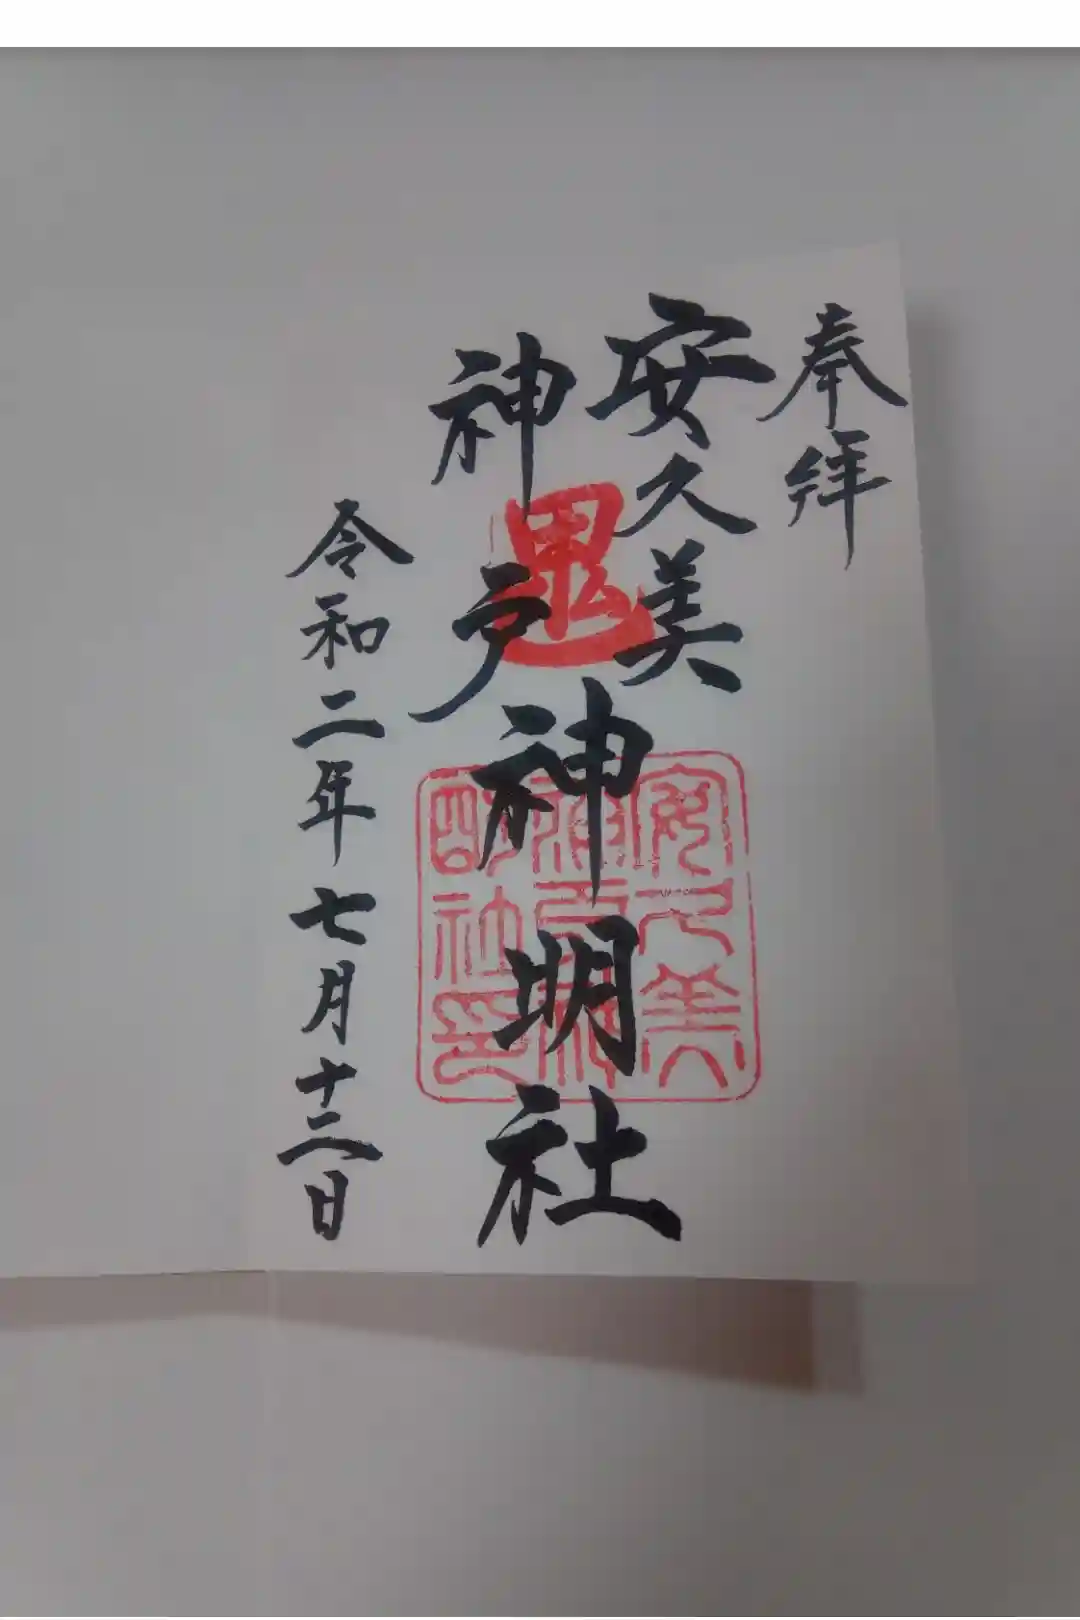 奉拝
安久美
神戸
神明社
令和二年七月十二日
鬼
安久美
神戸神
明社印